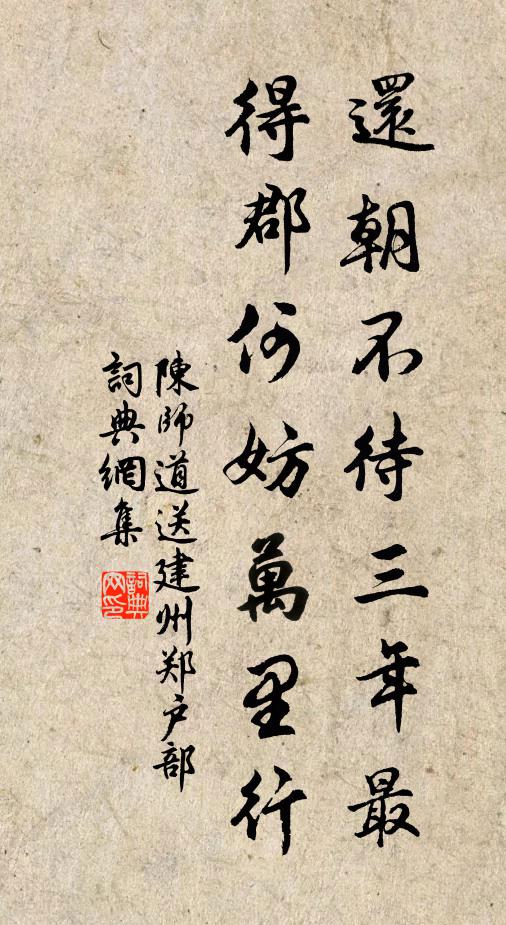 還朝不待三年最
得郡何妨萬里行
陳師道送建州郑户部
詞典網集
詞典
网印